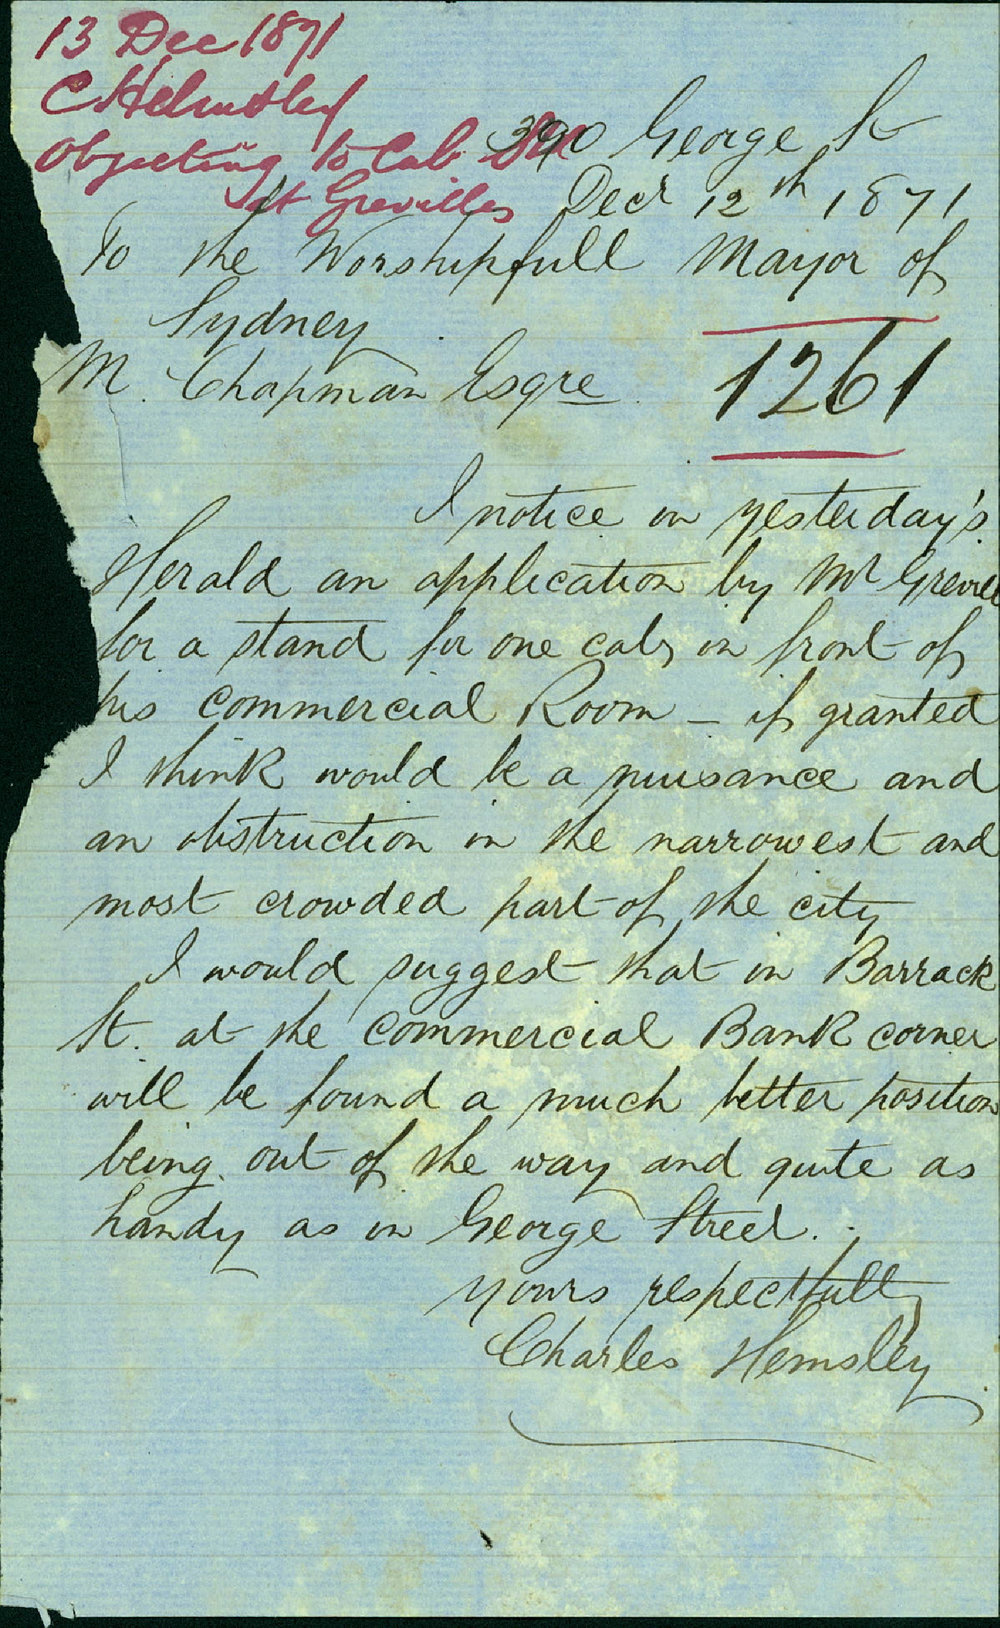 13 Dec 1871
C Helmsley
Objecting to Cab
at Grevilles
390 George St
Decr 12th 1871
To the Worshipfull Mayor of
Sydney
M. Chapman Esqre
1261
I notice in yesterday's
Herald an application by Mr Greville
for a stand for one cab, in front of
his commercial Room – if granted
I think would be a nuisance and
an obstruction in the narrowest and
most crowded part of the city
I would suggest that in Barrack
St. at the Commercial Bank corner
will be found a much better position
being out of the way and quite as
handy as in George Street.
yours respectfully
Charles Hemsley